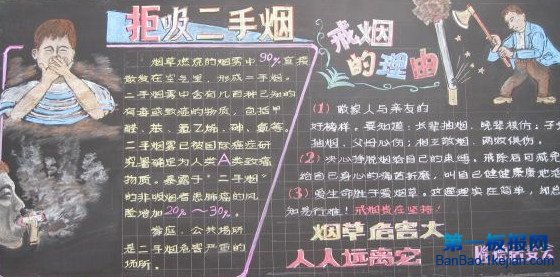 拒吸二手烟
烟草燃烧的烟雾中90%直接
散发在空气里,形成二手烟。
二手烟雾中含有几百种已知的
有毒或致癌的物质,包括甲
醛、苯、氯乙烯、砷、氨等。
二手烟雾已被国际癌症研
究署确定为人类A类致癌
物质。暴露于“二手烟”
的非吸烟者患肺癌的风
险增加20%~30%。
家庭、公共场所
是二手烟危害严重的
场所。
戒烟
的理由
(1)做家人与亲友的
好榜样。要知道:长辈抽烟,晚辈很伤;子
抽烟,父母心伤;相互敬烟,两败俱伤。
(2)决心挣脱烟给自己的束缚。戒除后可减免
给自己身心的痛苦折磨,叫自己健健康康地
(3)爱生命胜于爱烟草。这道理实在简单,却
知易行难!戒烟贵在坚持!
烟草危害大
人人远离它
第一板报网
BanBao.1kejian.com